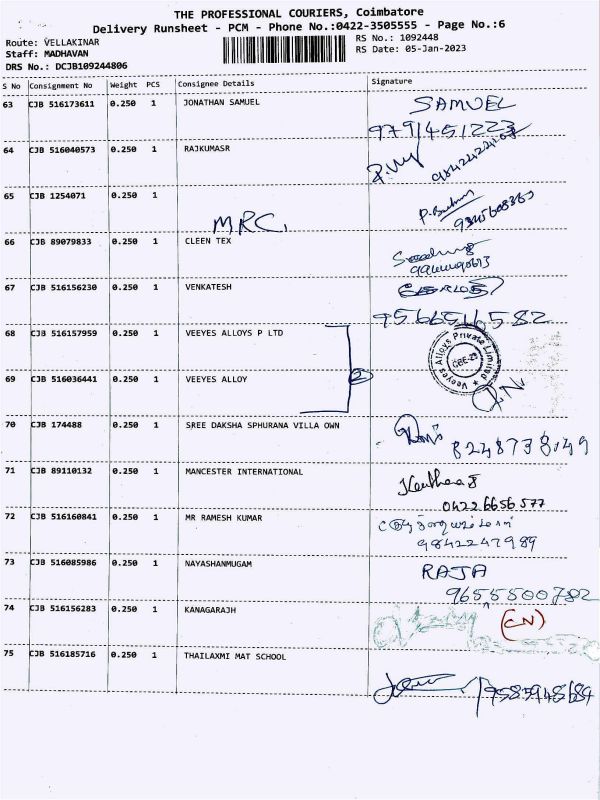 THE PROFESSIONAL COURIERS, Coimbatore
Delivery Runsheet - PCM - Phone No.:0422-3505555 - Page No.:6
Route: VELLAKINAR
RS No.: 1092448
Staff: MADHAVAN
RS Date: 05-Jan-2023
DRS No.: DCJB109244806
S No Consignment No Weight PCS Consignee Details Signature
63 CJB 516173611 0.250 1 JONATHAN SAMUEL SAMUEL
9791451223
64 CJB 516040573 0.250 1 RAJKUMASR
65 CJB 1254071 0.250 1
MRC.
66 CJB 89079833 0.250 1 CLEEN TEX
67 CJB 516156230 0.250 1 VENKATESH
68 CJB 516157959 0.250 1 VEEYES ALLOYS P LTD
Veeyes Alloys Private Limited
CBE-29
2
69 CJB 516036441 0.250 1 VEEYES ALLOY
70 CJB 174488 0.250 1 SREE DAKSHA SPHURANA VILLA OWN
8248738149
71 CJB 89110132 0.250 1 MANCESTER INTERNATIONAL
0422 6656577
72 CJB 516160841 0.250 1 MR RAMESH KUMAR
9842247989
73 CJB 516085986 0.250 1 NAYASHANMUGAM RAJA
9655500782
74 CJB 516156283 0.250 1 KANAGARAJH
(CN)
75 CJB 516185716 0.250 1 THAILAXMI MAT SCHOOL
9585948684